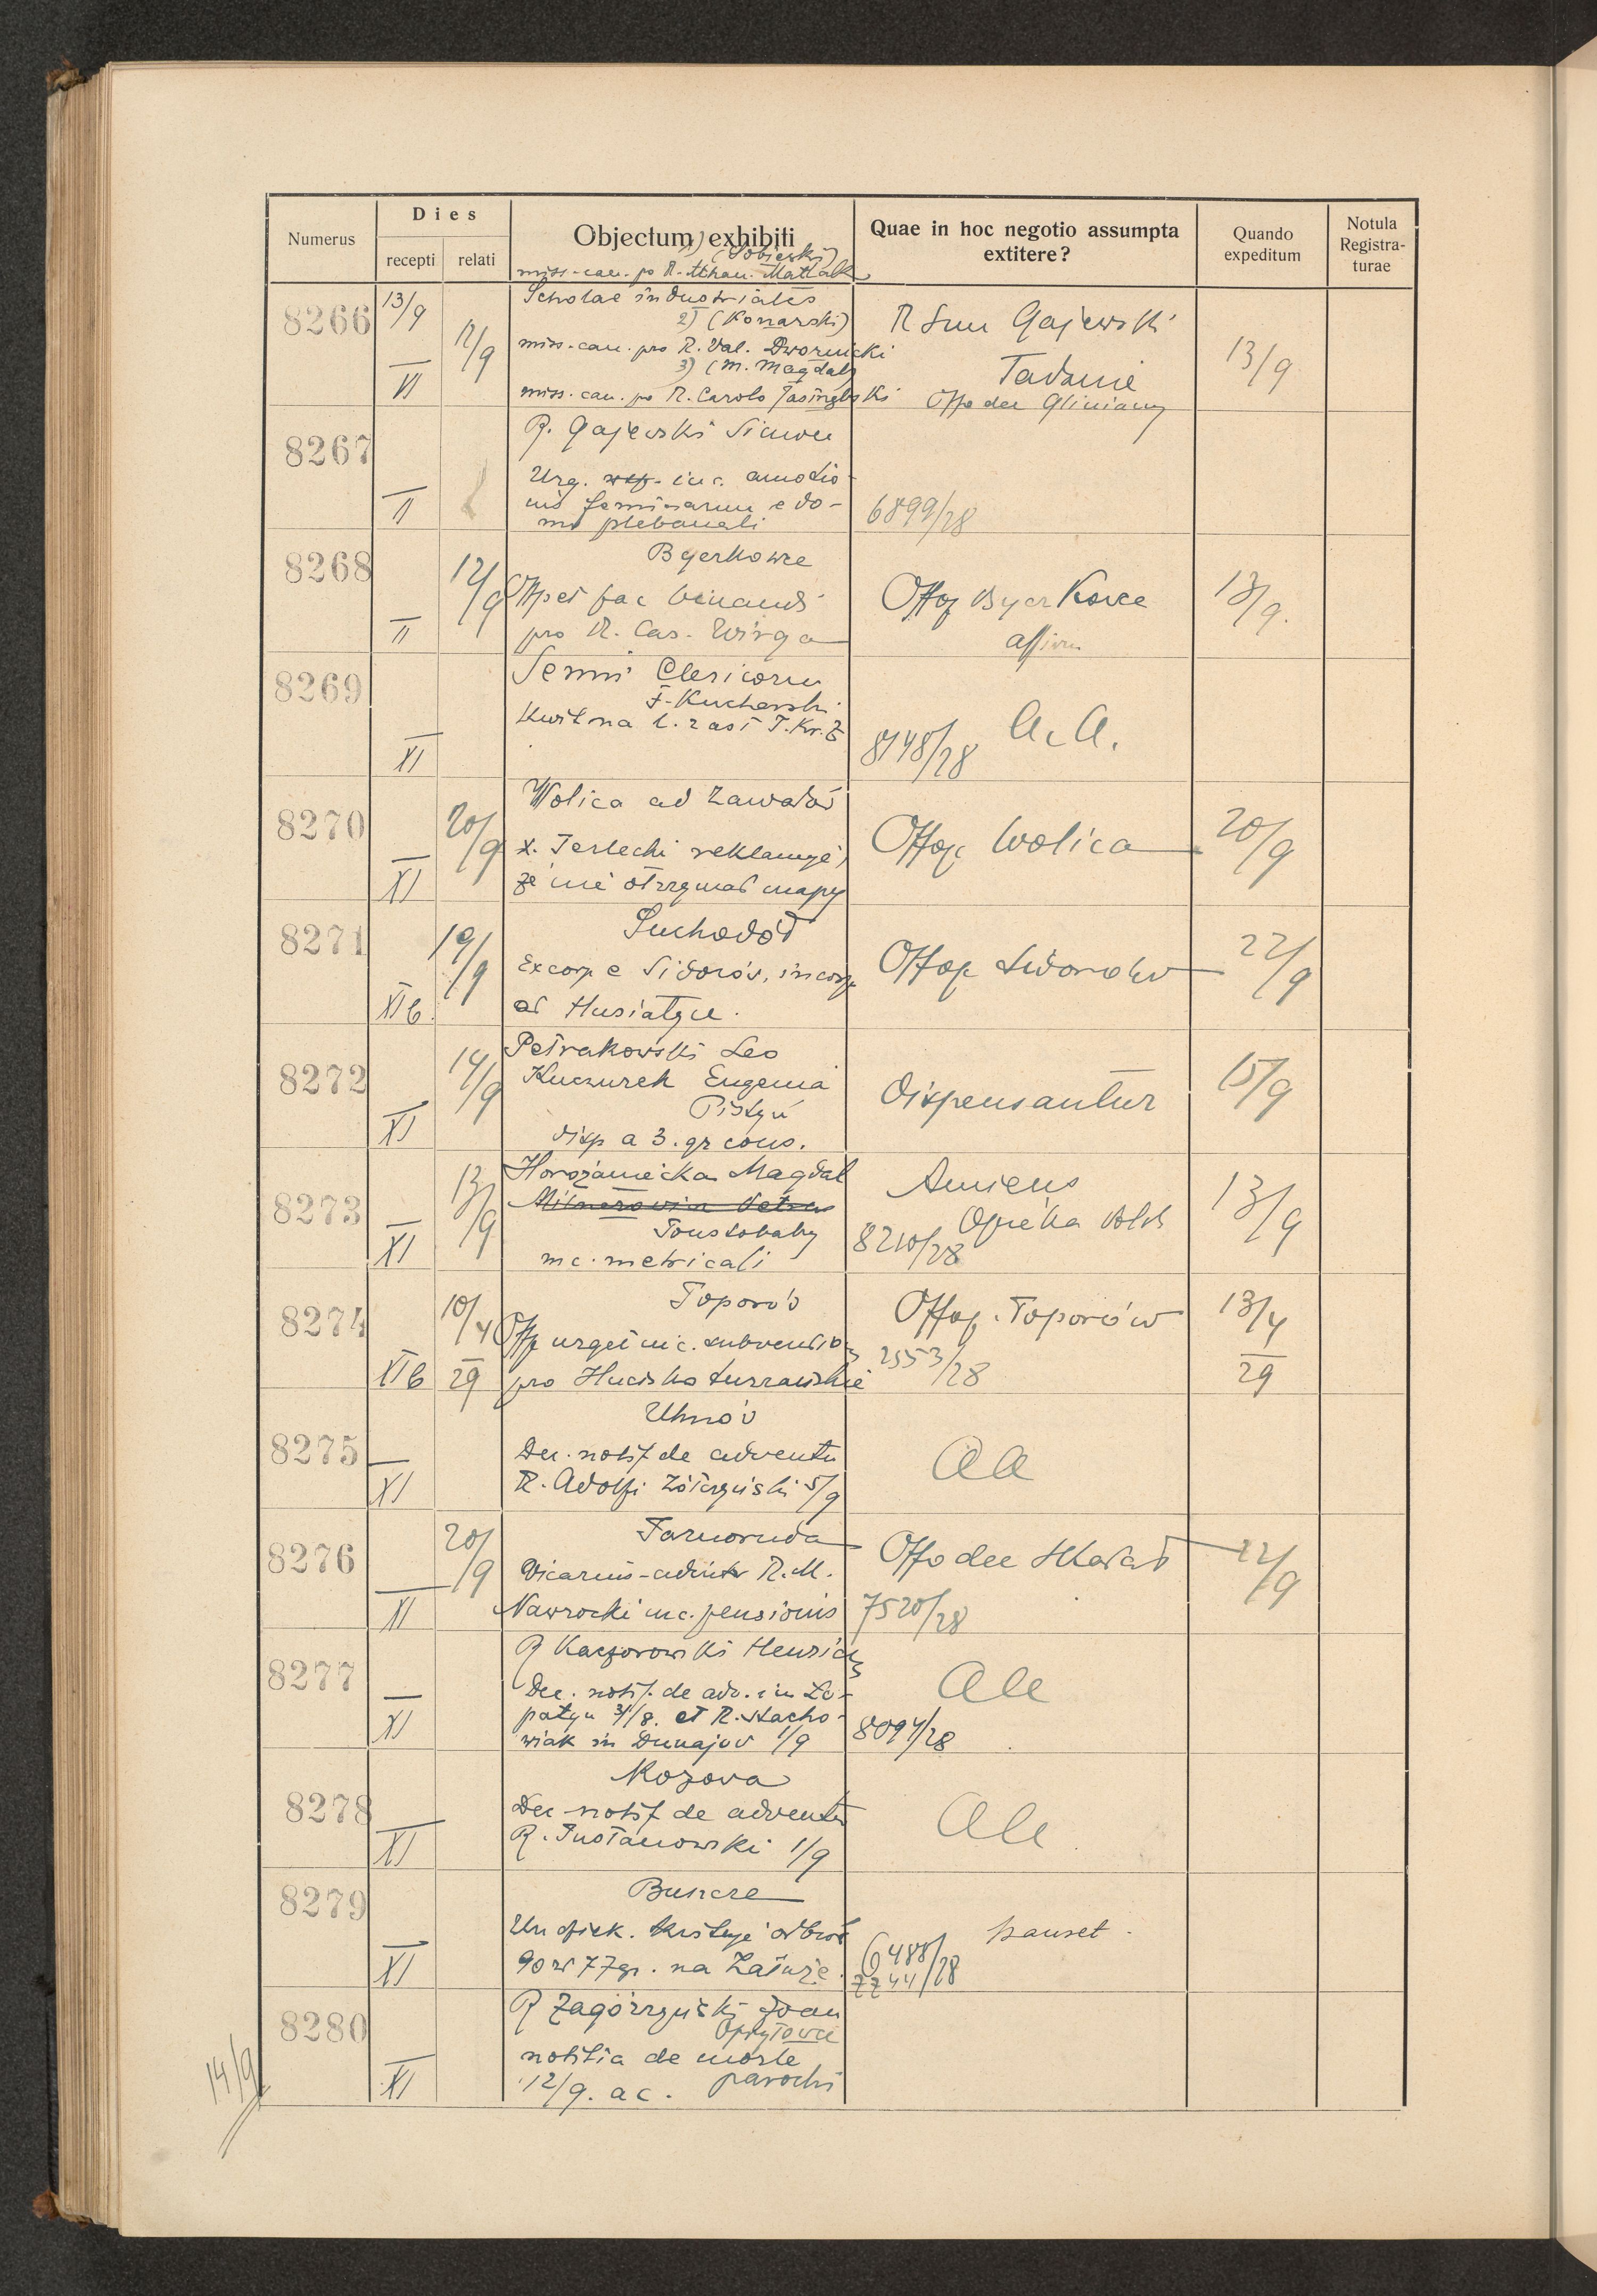 Numerus
Dies
recepti
relati
Objectum exhibiti
Quae in hoc negotio assumpta extitere?
Quando expeditum
Notula Registra-turae
1) (Sobieski)
miss-can. po R. Matlak
8266
13/9
VI
12/9
Scholae industriales
2) (Konarski)
miss-can. pro R. Val. Dwornicki
3) (M. Magdal)
miss. can. po R. Carolo
R Gajewski
Tadanie
Offo dec Gliniany
13/9
8267
II
R. Gajewski
Urg. inc. amotio-
nis feminarum e do-
mo plebanali
6899/28
8268
II
12/9
Bycrkowce
Offpet fac binandi
pro R. Cas. Wirga
Offop Bycrkowce
13/9.
8269
XI
Semin Clericorum
F. Kucharski
8148/28
A. A.
8270
XI
20/9
Wolica ad
x. Terlecki reklamuje,
że nie otrzymał mapy
Offop Wolica
20/9
8271
XIb.
19/9
Suchodół
Excorp e Sidorów, incorp
ad Husiatyn.
Offop Sidorow
22/9
8272
XI
14/9
Petrakowski Leo
Kuczurek Eugenia
Pistyń
disp a 3. gr cons.
Dispensantur
15/9
8273
XI
13/9
Horożaniecka Magdal
Toustobaby
inc. metricali
Amiens
Opieka Polsk
8210/28
13/9
8274
XIb
10/4
29
Toporów
Offp urget inc. subvention
pro
Offop. Toporów
2553/28
13/4
29
8275
XI
Uhnów
Dec. notif de adventu
R. Adolfi 5/9
aa
8276
XI
20/9
Tarnoruda
Vicarius-adintr R. M.
Nawrocki inc. pensionis
Offo dec Skałat
7520/28
22/9
8277
XI
R Kaczorowski Henric
Dec. notif. de adv. in Ło-
patyn 31/8. et R. Stacho-
wiak in Dunajów 1/9
aa
8094/28
8278
XI
Kozowa
Dec notif de adventu
R. 1/9
aa
8279
XI
90 zł 77 gr. na
6488/28
7744/28
8280
XI
R Zagórzyński Joan
notitia de morte
12/9. a c. parochi
14/9